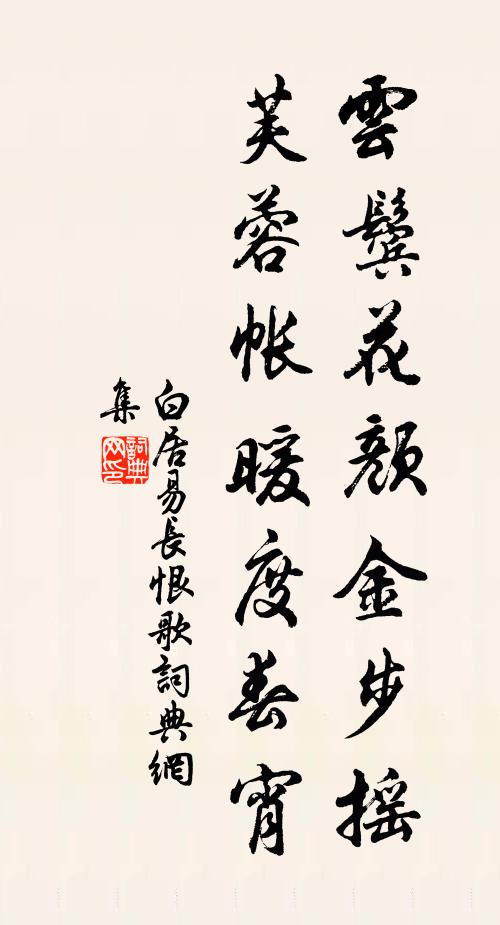 雲鬢花顏金步搖
芙蓉帳暖度春宵
白居易長恨歌詞典網
集
詞典网印